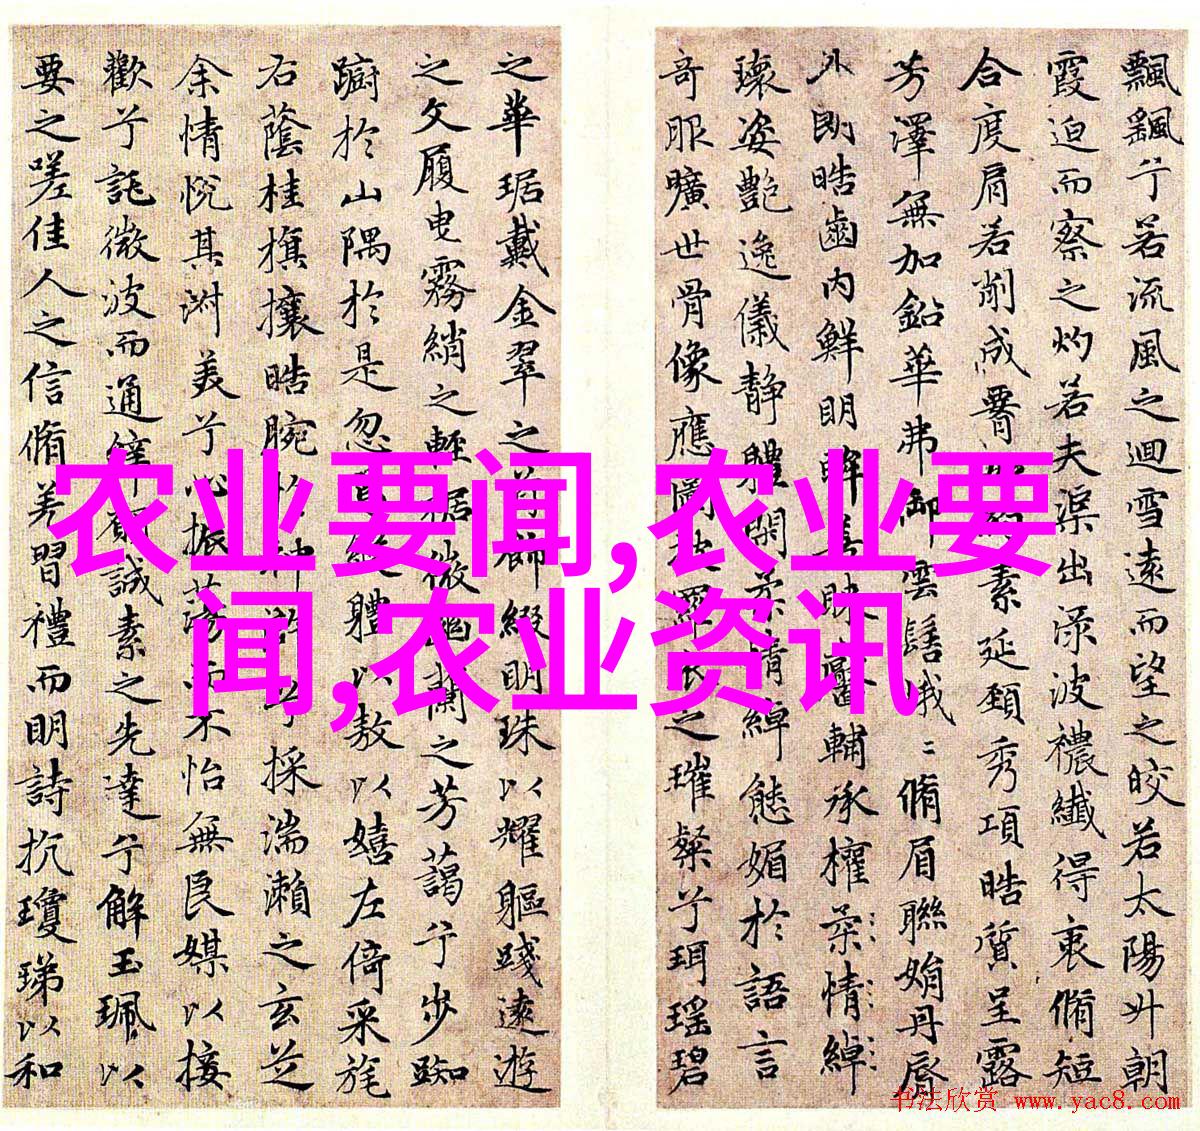 飄飖兮若流風之迴雪遠而望之皎若太陽升朝
霞迫而察之灼若夫渠出淥波禯纖得衷脩短
合度肩若削成素延頚秀項皓質呈露
芳澤無加鉛華弗御雲髻峩〻脩眉聯娟丹唇
外朗皓齒内鮮明眸輔承權柔情綽
瓌姿艷逸儀静體閑柔情綽態媚於語言
奇服曠世骨像應之璀粲兮珥瑶碧
之華琚戴金翠之飾綴明珠以耀軀踐遠遊
之文履曳霧綃之輕裾微幽蘭之芳藹兮步踟
蹰於山隅於是忽焉縱體以敖以嬉左倚采旄
右蔭桂旗攘皓腕採湍瀨之玄芝
余情悅其淑美兮心振蕩而不怡無良媒以接
歡兮託微波而通辭誠素之先達兮解玉珮以
要之嗟佳人之信脩羌習禮而明詩抗瓊珶以和
农业要闻,农业要
闻,农业资讯
书法欣赏 www.yac8.com